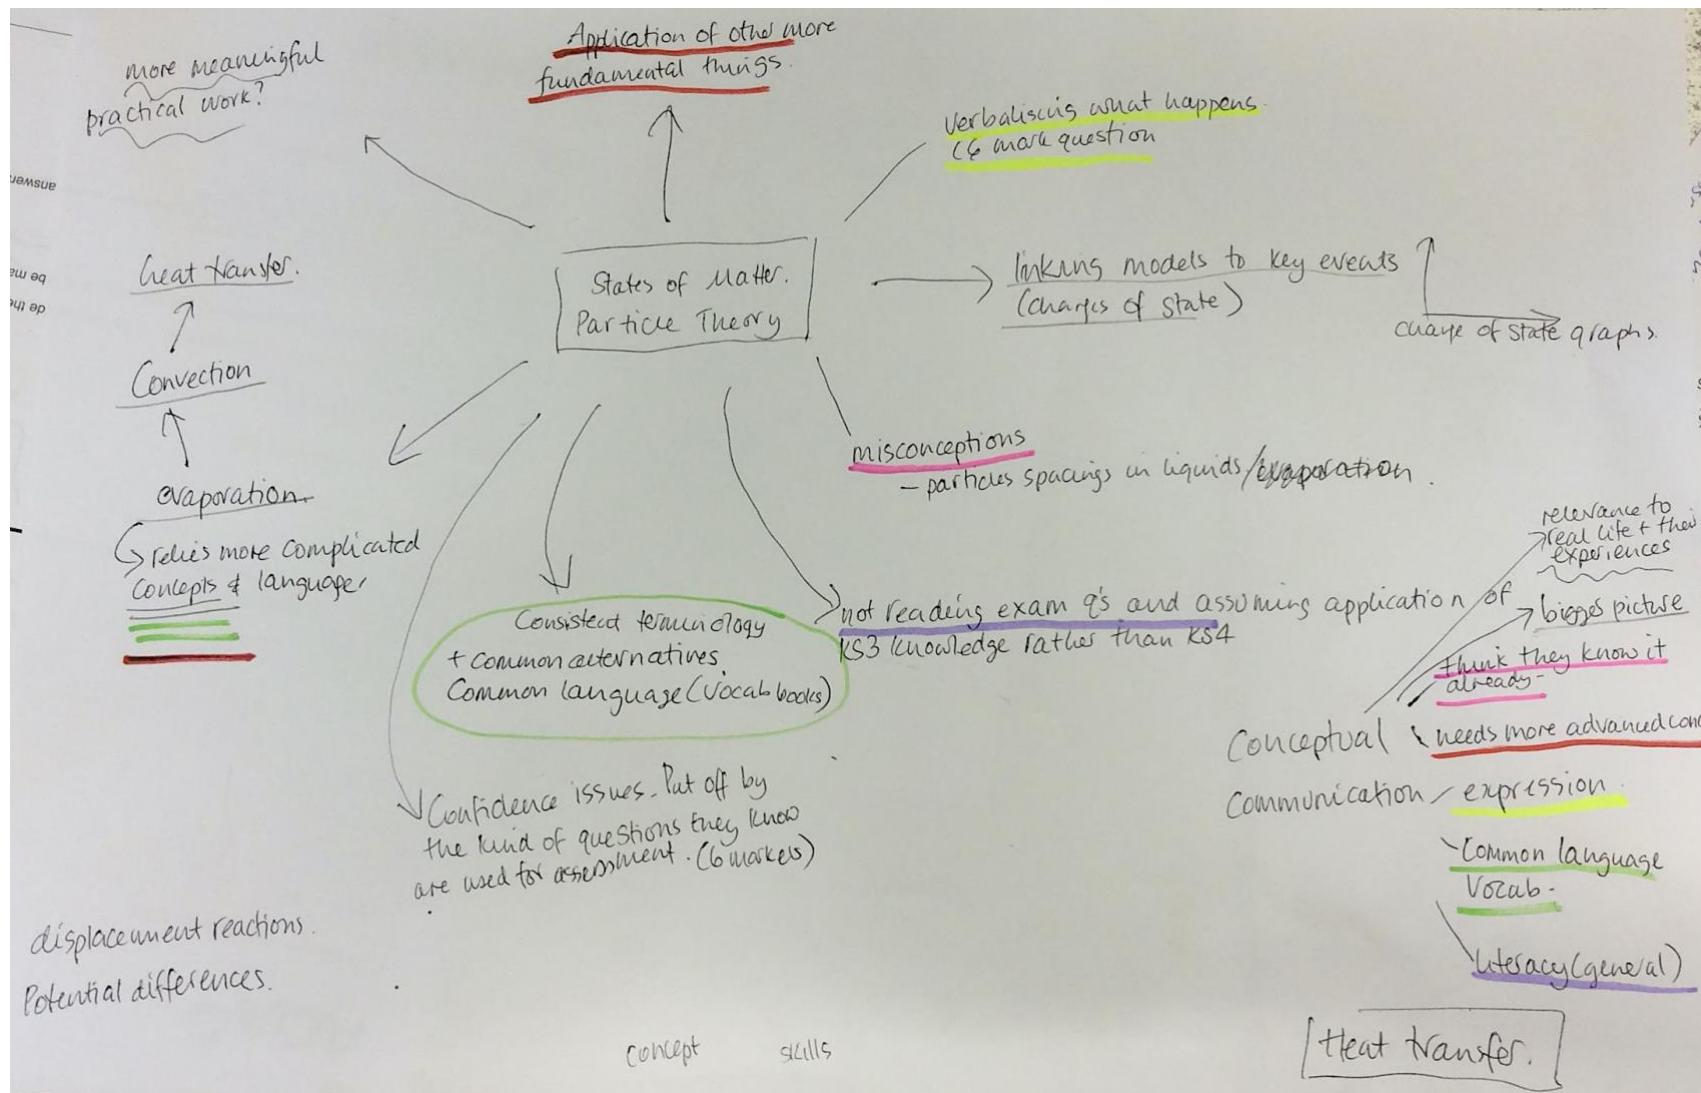 more meaningful
practical work?
Application of other more
fundamental things.
verbalising what happens.
(6 mark question
answer
be me
de the
heat transfer.
Convection
evaporation
relies more complicated
concepts & language
States of Matter.
Particle Theory
linking models to key events
(changes of state)
change of state graphs.
misconceptions
- particles spacings in liquids/evaporation.
Consistent terminology
+ common alternatives
Common language (vocab books)
not reading exam q's and assuming application of
KS3 knowledge rather than KS4
Confidence issues. Put off by
the kind of questions they know
are used for assessment. (6 markers)
relevance to
real life + their
experiences
bigger picture
think they know it
already-
Conceptual
needs more advanced conc
Communication
expression
Common language
Vocab-
Literacy (general)
displacement reactions.
Potential differences.
concept skills
Heat transfer.